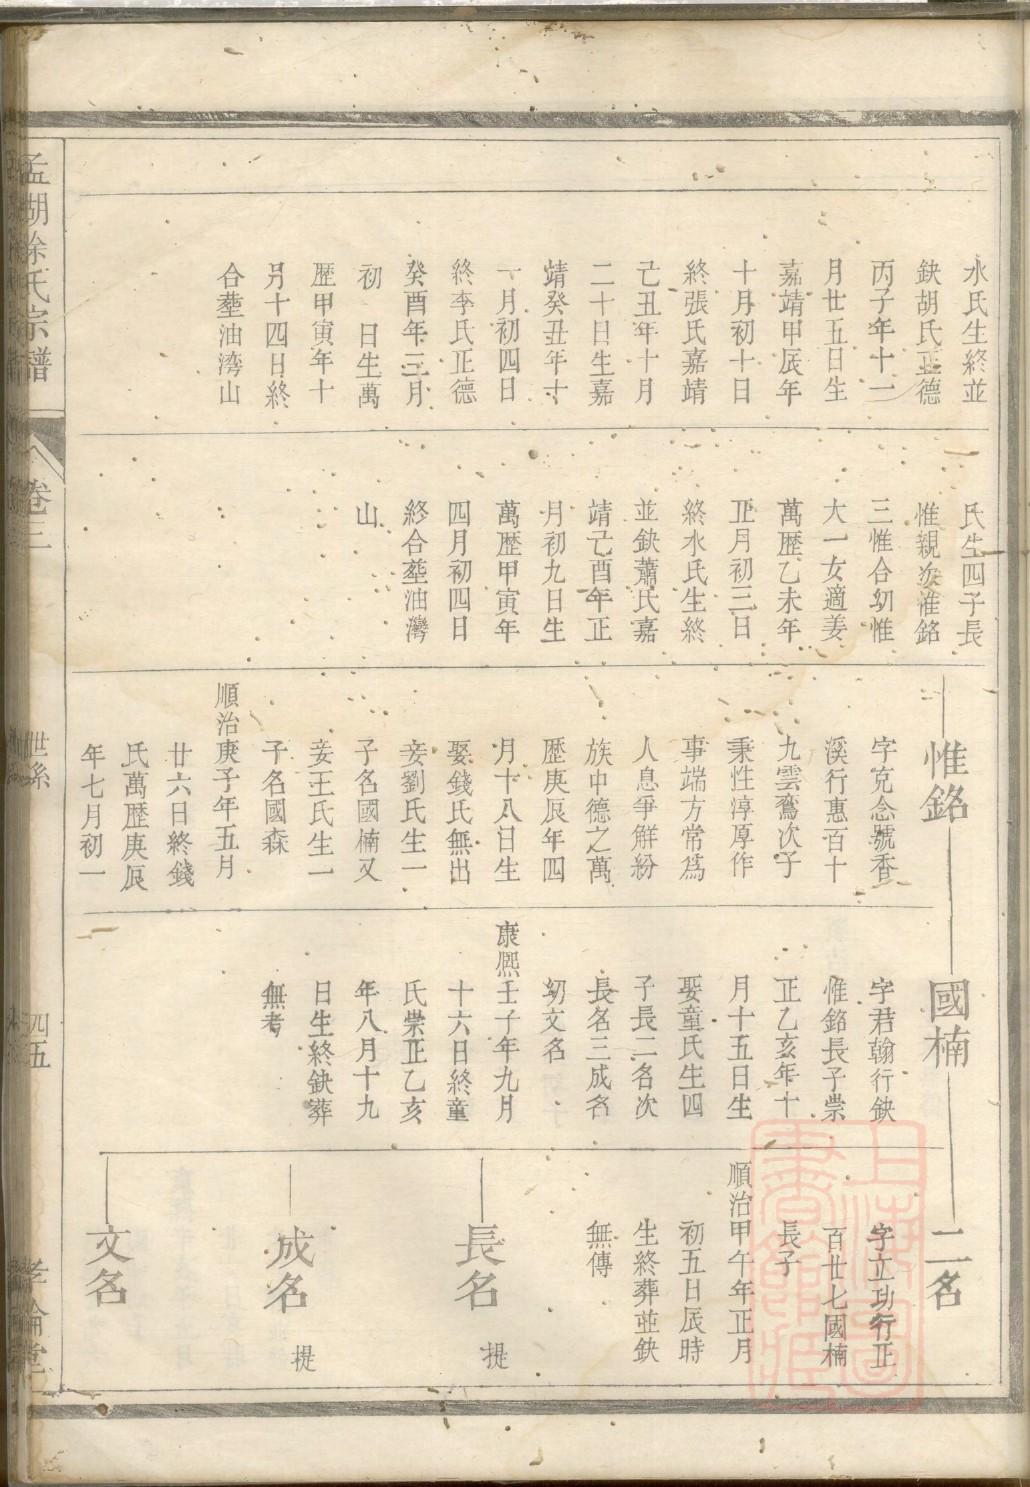 水氏生終並
缺胡氏正德
丙子年十二
月廿五日生
嘉靖甲辰年
十月初十日
終張氏嘉靖
己丑年十月
二十日生嘉
靖癸丑年十
一月初四日
終李氏正德
癸酉年三月
初 日生萬
歷甲寅年十
月十四日終
合塟油湾山
氏生四子長
惟親次惟銘
三惟合幼惟
大一女適姜
萬歷乙未年
正月初三日
終水氏生終
並缺蕭氏嘉
靖己酉年正
月初九日生
萬歷甲寅年
四月初四日
終合塟油灣
山
惟銘
字克念號香
溪行惠百十
九雲鶱次子
秉性淳厚作
事端方常為
人息爭解紛
族中德之萬
歷庚辰年四
月十八日生
娶錢氏無出
妾劉氏生一
子名國楠又
妾王氏生一
子名國森
順治庚子年五月
廿六日終錢
氏萬歷庚辰
年七月初一
國楠
字君翰行缺
惟銘長子崇
正乙亥年十
月十五日生
娶童氏生四
子長二名次
長名三成名
幼文名
康熙壬子年九月
十六日終童
氏崇正乙亥
年八月十九
日生終缺葬
無考
二名
字立功行正
百廿七國楠
長子
順治甲午年正月
初五日辰時
生終葬並缺
無傳
長名
提
成名
提
文名
孟湖徐氏宗譜
卷三
世系
四五
孝倫堂
上海圖
書館藏